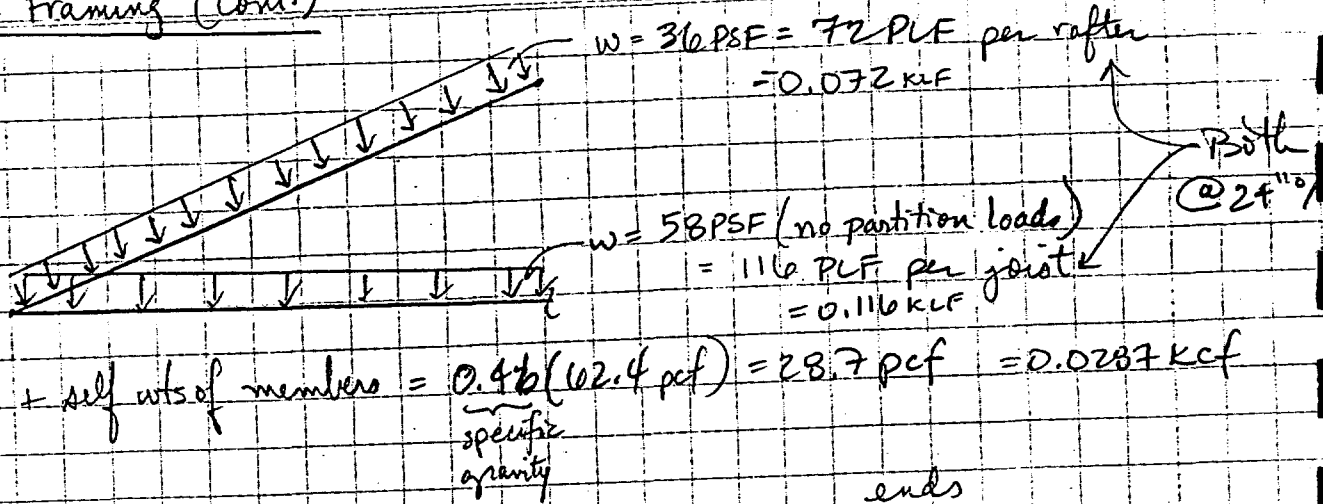 Framing (cont.)
w = 36 PSF = 72 PLF per rafter
= 0.072 KLF
Both
@ 24" o/
w = 58 PSF (no partition loads)
= 116 PLF per joist
= 0.116 KLF
+ self wts of members = 0.46 (62.4 pcf) = 28.7 pcf = 0.0287 kcf
specific
gravity
ends